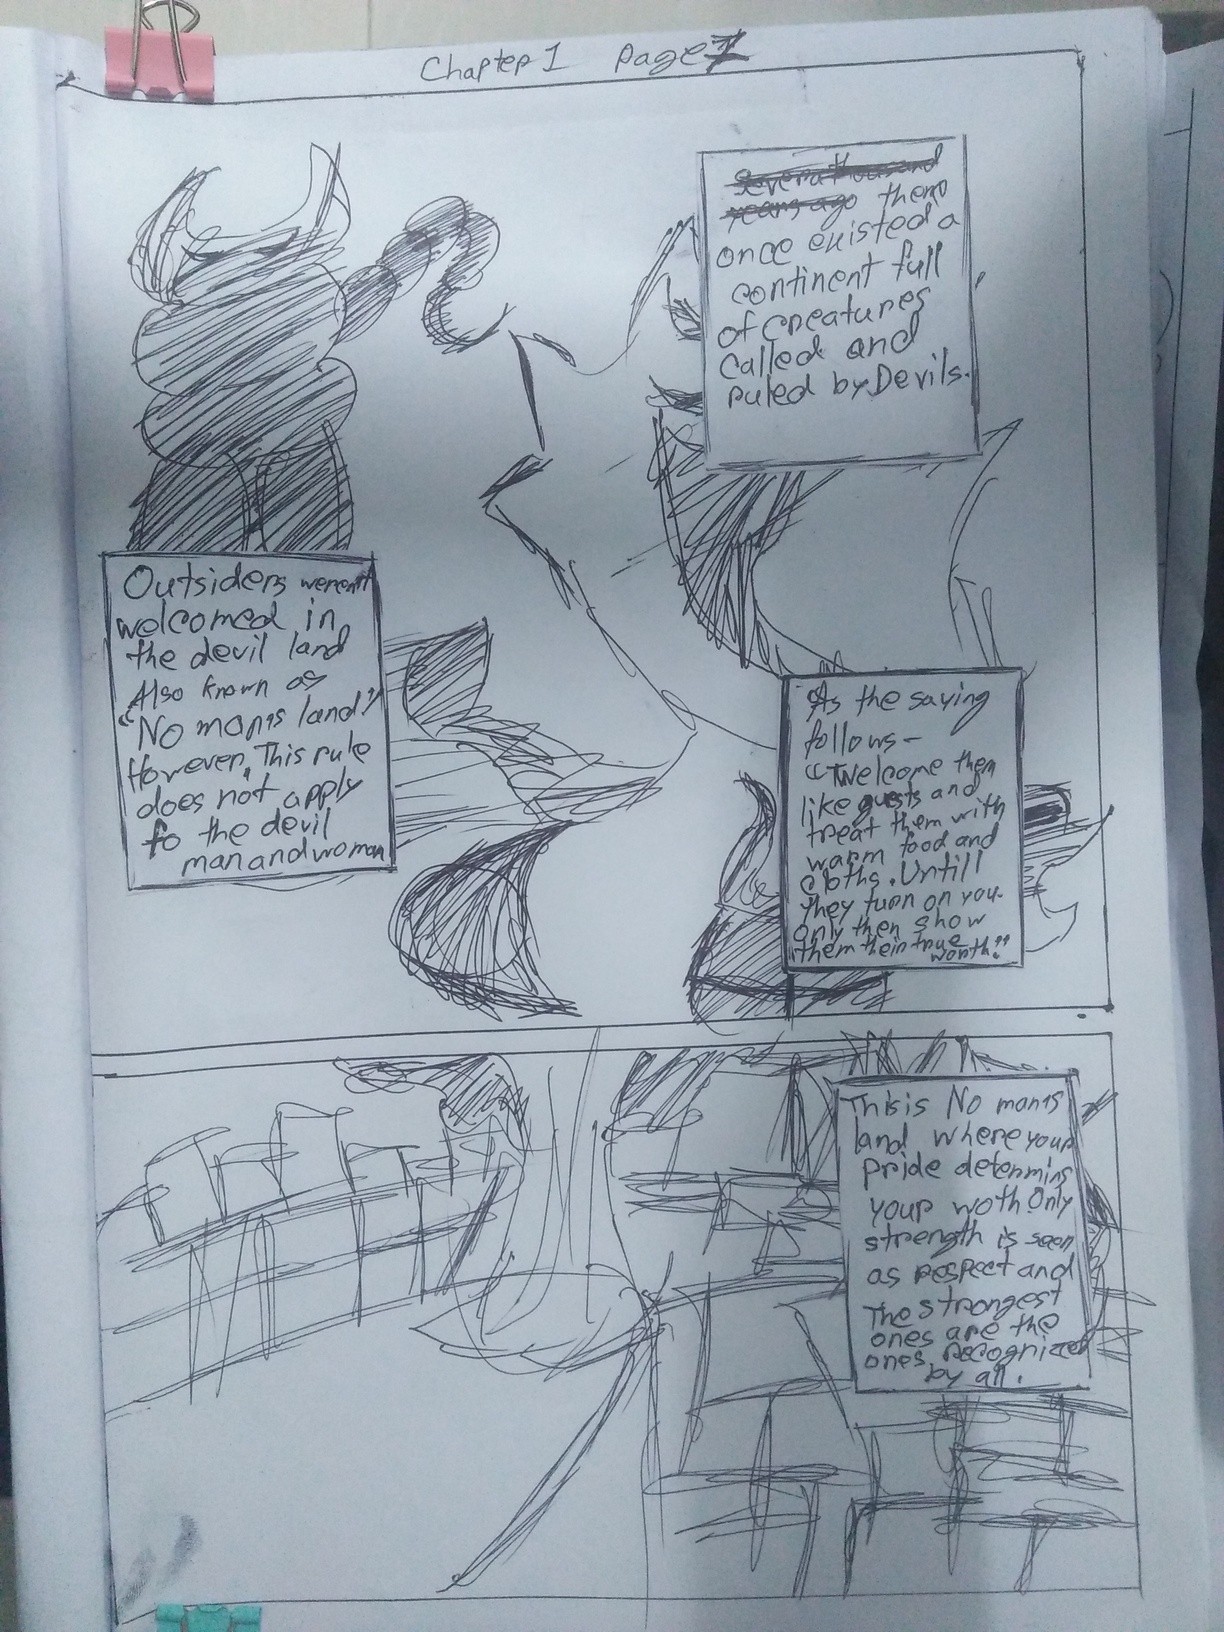 Chapter 1 Page 1
Severa thousand
years ago there
once existed a
continent full
of creatures
called and
ruled by Devils.
Outsiders weren't
welcomed in
the devil land
Also known as
"No man's land"
However, This rule
does not apply
to the devil
man and woman
As the saying
follows-
"Welcome them
like guests and
treat them with
warm food and
cloths. Untill
they turn on you.
only then show
them their true
worth."
This is No man's
land where your
pride determins
your woth Only
strength is seen
as respect and
The strongest
ones are the
ones recognized
by all.